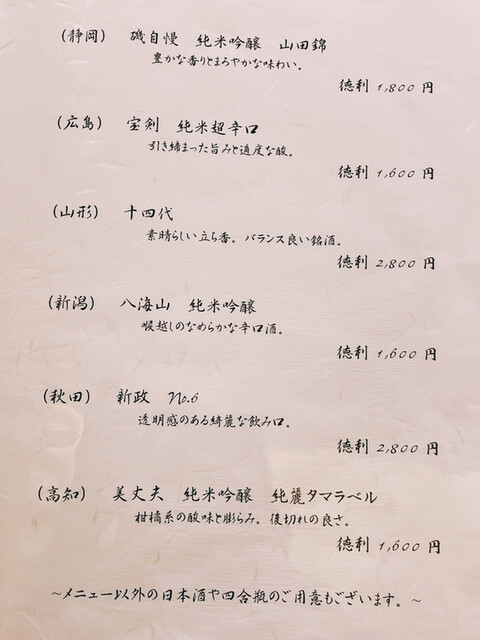 (静岡) 磯自慢 純米吟醸 山田錦
豊かな香りとまろやかな味わい。
徳利 1,800 円
(広島) 宝剣 純米超辛口
引き締まった旨みと適度な酸。
徳利 1,600 円
(山形) 十四代
素晴らしい立ち香。バランス良い銘酒。
徳利 2,800 円
(新潟) 八海山 純米吟醸
喉越しのなめらかな辛口酒。
徳利 1,600 円
(秋田) 新政 No.6
透明感のある綺麗な飲み口。
徳利 2,800 円
(高知) 美丈夫 純米吟醸 純麗タマラベル
柑橘系の酸味と膨らみ。後切れの良さ。
徳利 1,600 円
~メニュー以外の日本酒や四合瓶のご用意もございます。~